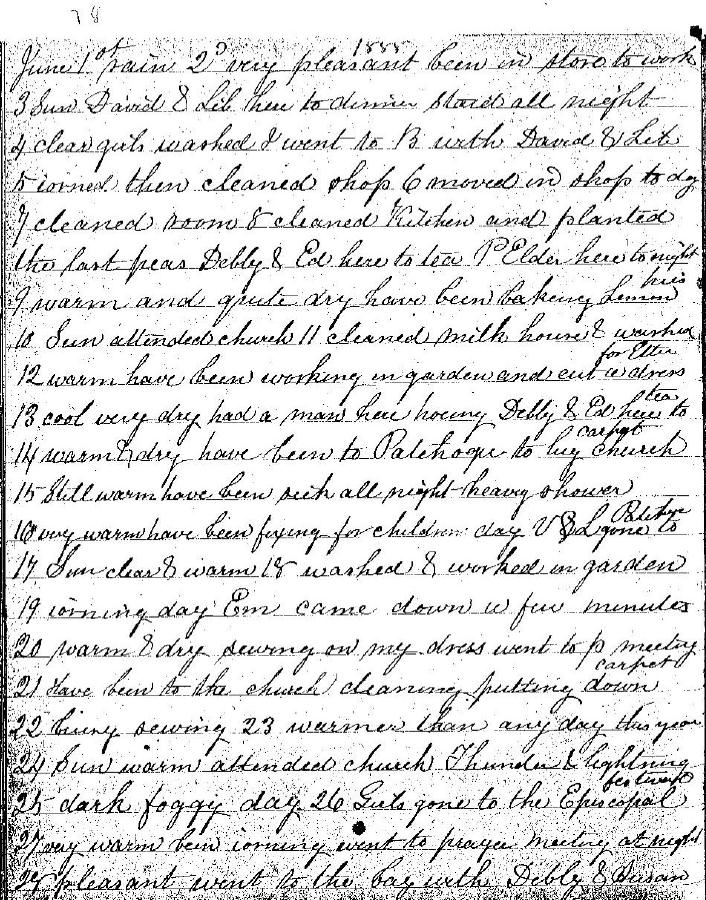 78
1888
June 1st rain 2d very pleasant been in store to work
3 Sun David & Lib here to dinner staid all night
4 clear girls washed I went to B with David & Lib
5 iorned then cleaned shop 6 moved in shop to day
7 cleaned room 8 cleaned Kitchen and planted
the last peas Debby & Ed here to tea P Elder here to night
9 warm and quite dry have been baking Lemon pies
10 Sun attended church 11 cleaned milk house & washed
12 warm have been working in garden and cut a dress for Etta
13 cool very dry had a man here hoeing Debby & Ed here to tea
14 warm & dry have been to Patchogue to buy church carpet
15 Still warm have been sick all night heavy shower
16 very warm have been fixing for children day V & L gone to Patchogue
17 Sun clear & warm 18 washed & worked in garden
19 iorning day Em came down a few minutes
20 warm & dry sewing on my dress went to p meeting
21 have been to the church cleaning putting down carpet
22 busy sewing 23 warmer than any day this year
24 Sun warm attended church Thunder & lightning
25 dark foggy day 26 Girls gone to the Episcopal festival
27 very warm been iorning went to prayer meeting at night
28 pleasant went to the bay with Debby & Susan